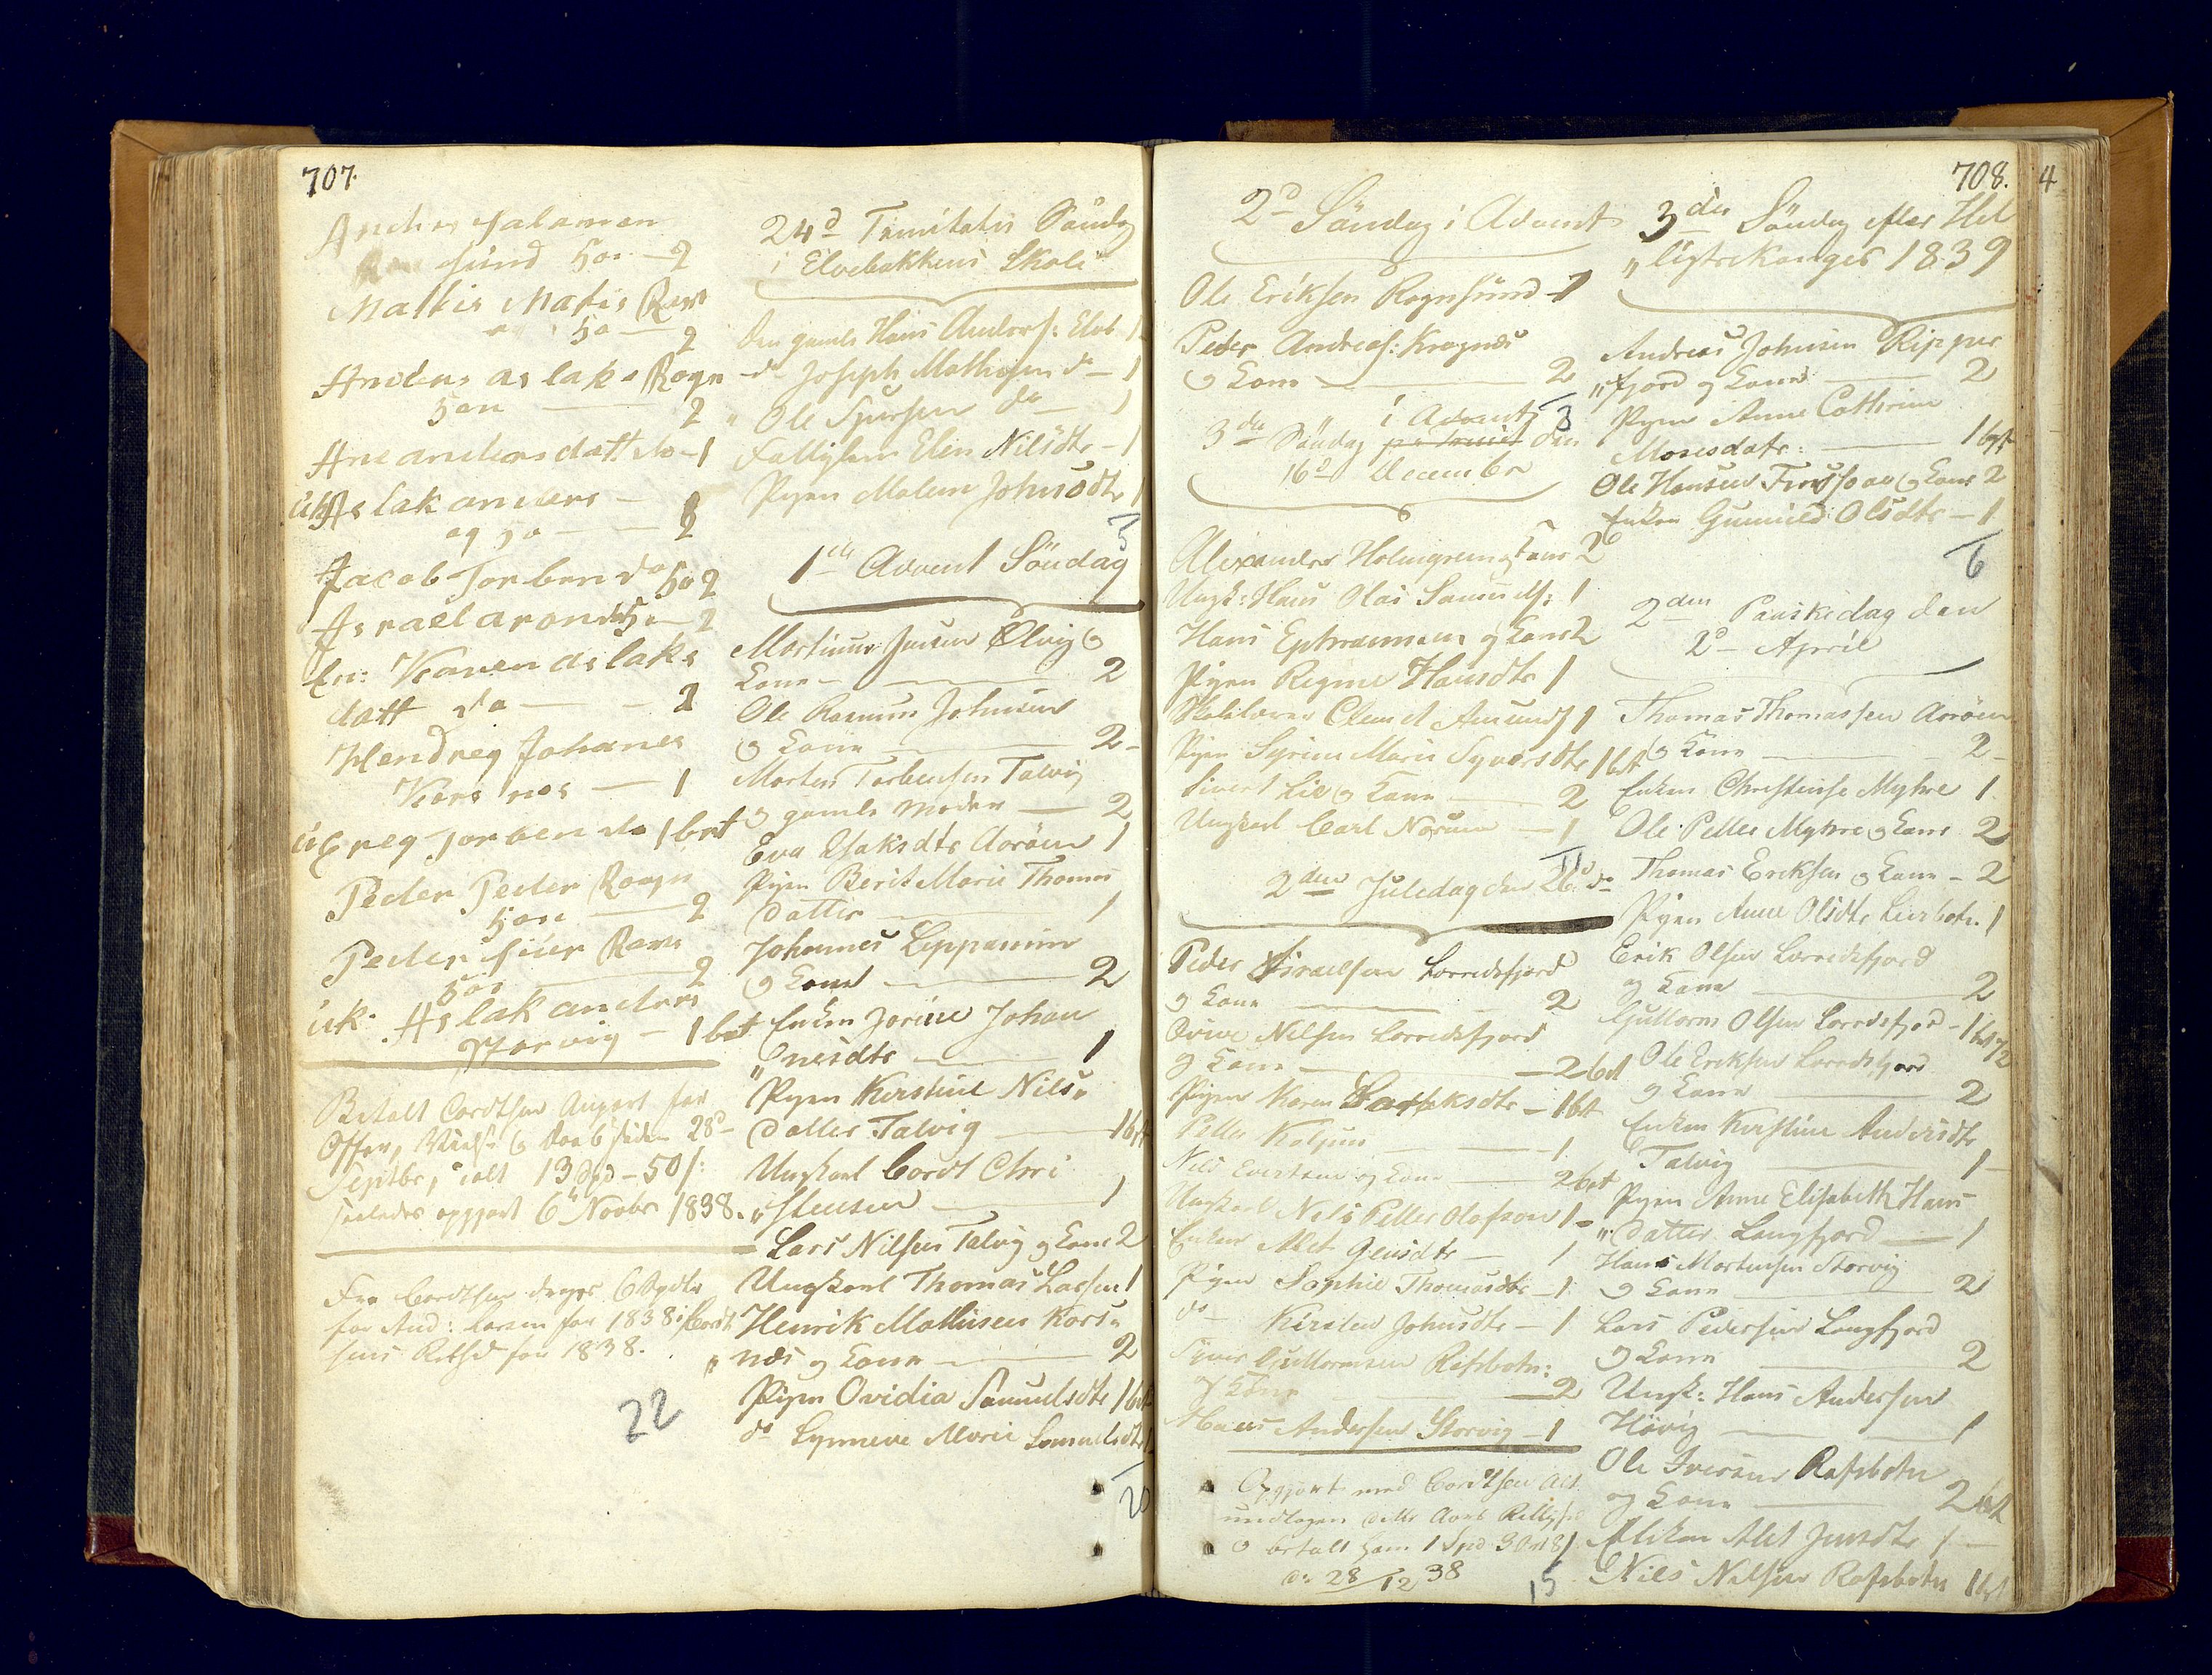 707.
Anders Salamon
sund kone 2
Mattis Matis Ravn
ko — 2
Anders aslaks Rogn
kone — 2
Ane andersdatt do – 1
uk Aslak anders –
og ko — 2
Jacob Torben do ko 2
Israel aronds ko – 2
En: Karen aslaks
datt do — 1
Hendreg Johanes
Kors nes — 1
Greg Torben do 1 bet
Peder Peder Rogn
kone — 2
Peder siver Ravn
kone — 2
uk. Aslak anders
Storvig – 1 bet
Betalt Cordtsen Angaet for
Offer, Vielse og Daab siden 28d
Septbr, ialt 13 Spd – 50 s:
saaledes opgjort 6 Novbr 1838.
Fra Cordtsen drages 6 Spdlr
for And: Larsen for 1838 i Cordt
sens Rettsd for 1838.
22
24d Trinitatis Søndag
i Elvebakkens Skole
Den gamle Hans Anders: Elvb – 1
do Joseph Mathisen do – 1
" Ole Sjursen do – 1
Fattiglem Elen Nilsdtr – 1
Pigen Malene Johnsdtr 1
5
1ste Advent Søndag
Martinus Jensen Ølvig og
Kone — 2
Ole Rasmus Johnsen
og Kone — 2 –
Morten Torbensen Talvig
og gamle Moder — 2
Eva Isaksdtr Aarøen 1
Pigen Berit Marie Thomas
Datter — 1
Johannes Leppanen
og Kone — 2
Enken Jorine Johan
" nesdtr — 1
Pigen Kirstine Nils "
Datter Talvig — 1 bet
Ungkarl Cordt Chri
" stensen — 1
Lars Nilsen Talvig og Kone 2
Ungkarl Thomas Larsen 1
Henrik Mathisen Kors "
" næs og Kone — 2
Pigen Ovidia Samuelsdtr 1 bet
do Synneve Marie Samuelsdtr 1
20
708.
4
2d Søndag i Advent
Ole Eriksen Rognsund – 1
Peder Andreas: Kragnæs
og Kone — 2
3
3die Søndag i Advent den
16d December
Alexander Holmgren og Kone 2
Ungk: Hans Olai Samuels: 1
Hans Ephraimsen og Kone 2
Pigen Regine Hansdtr 1
Skolelærer Clemet Amunds 1
Pigen Syrine Marie Syversdtr 1 bet
Sivert Lie og Kone — 2
Ungkarl Carl Norum — 1
11
2den Juledag den 26d do
Peder Israelsen Lerredsfjord
og Kone — 2
Ovive Nilsen Lerredsfjord
og Kone — 2 bet
Pigen Karen Isaksdtr – 1 bet
Petter Kaljun — 1
Nils Evertsen og Kone — 2 bet
Ungkarl Nils Petter Olafson 1 –
Enken Alet Gensdtr – 1
Pigen Sophie Thomasdtr – 1
do Kirsten Johnsdtr – 1
Syver Guttormsen Refsbotn:
og Kone — 2
Hans Andersen Storvig – 1
Opgjort med Cordtsen alt
undtagen dette Aars
og betalt ham 1 Spd 3 Ort 8 s
d: 28/12 38
15
3die Søndag efter Hel
" ligtrekonger 1839
Andreas Johnsen Ripper
" fjord og Kone — 2
Pigen Anne Cathrine
Monsdatr: — 1 bet
Ole Hansen og Kone 2
Enken Gunnild Olsdtr – 1
6
2den Paaskedag den
2d April
Thomas Thomassen Aarøen
og Kone — 2 –
Enken Christense Myhre 1
Ole Petter Myhre og Kone 2
Thomas Eriksen og Kone – 2
Pigen Anne Olsdtr Leerbotn. 1
Erik Olsen Lerredsfjord
og Kone — 2
Guttorm Olsen Lerredsfjord – 1 bet
Ole Eriksen Lerredsfjord
og Kone — 2
Enken Kirstine Andersdtr
Talvig — 1 –
Pigen Anne Elisabeth Hans
" Datter Langfjord — 1
Hans Mortensen Storvig
og Kone — 2
Lars Pedersen Langfjord
og Kone — 2
Ungk: Hans Andersen
Høvig — 1
Ole Iversen Refsbotn
og Kone — 2 bet
Enken Alet Jensdtr 1 –
Nils Nilsen Refsbotn 1 bet